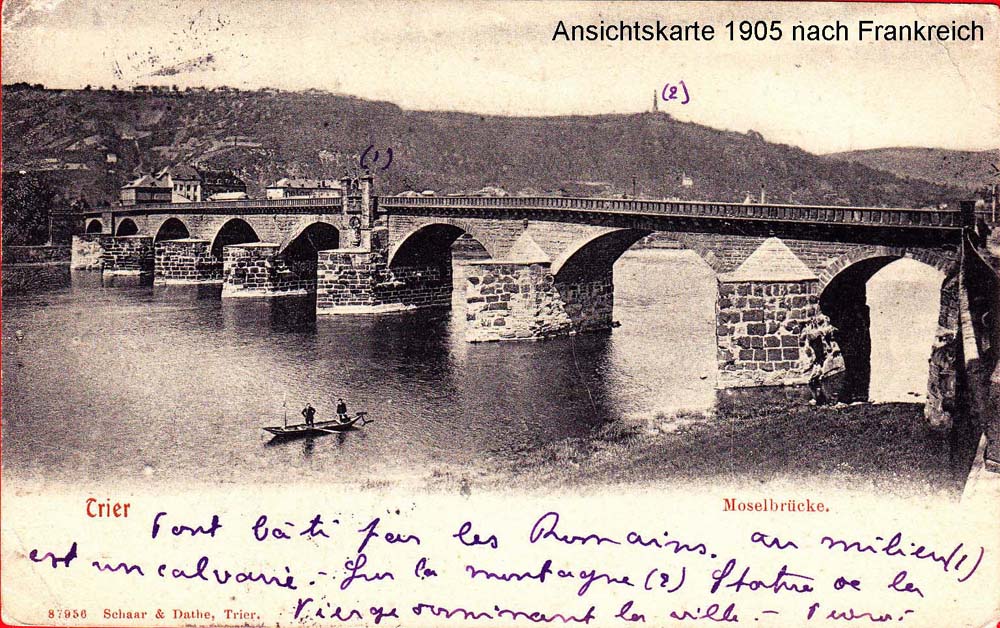 Ansichtskarte 1905 nach Frankreich
(2)
(1)
Trier
Moselbrücke.
Pont bâti par les Romains. au milieu (1)
est un calvaire. - Sur la montagne (2) Statue de la
Vierge dominant la ville. -
87956 Schaar & Dathe, Trier.